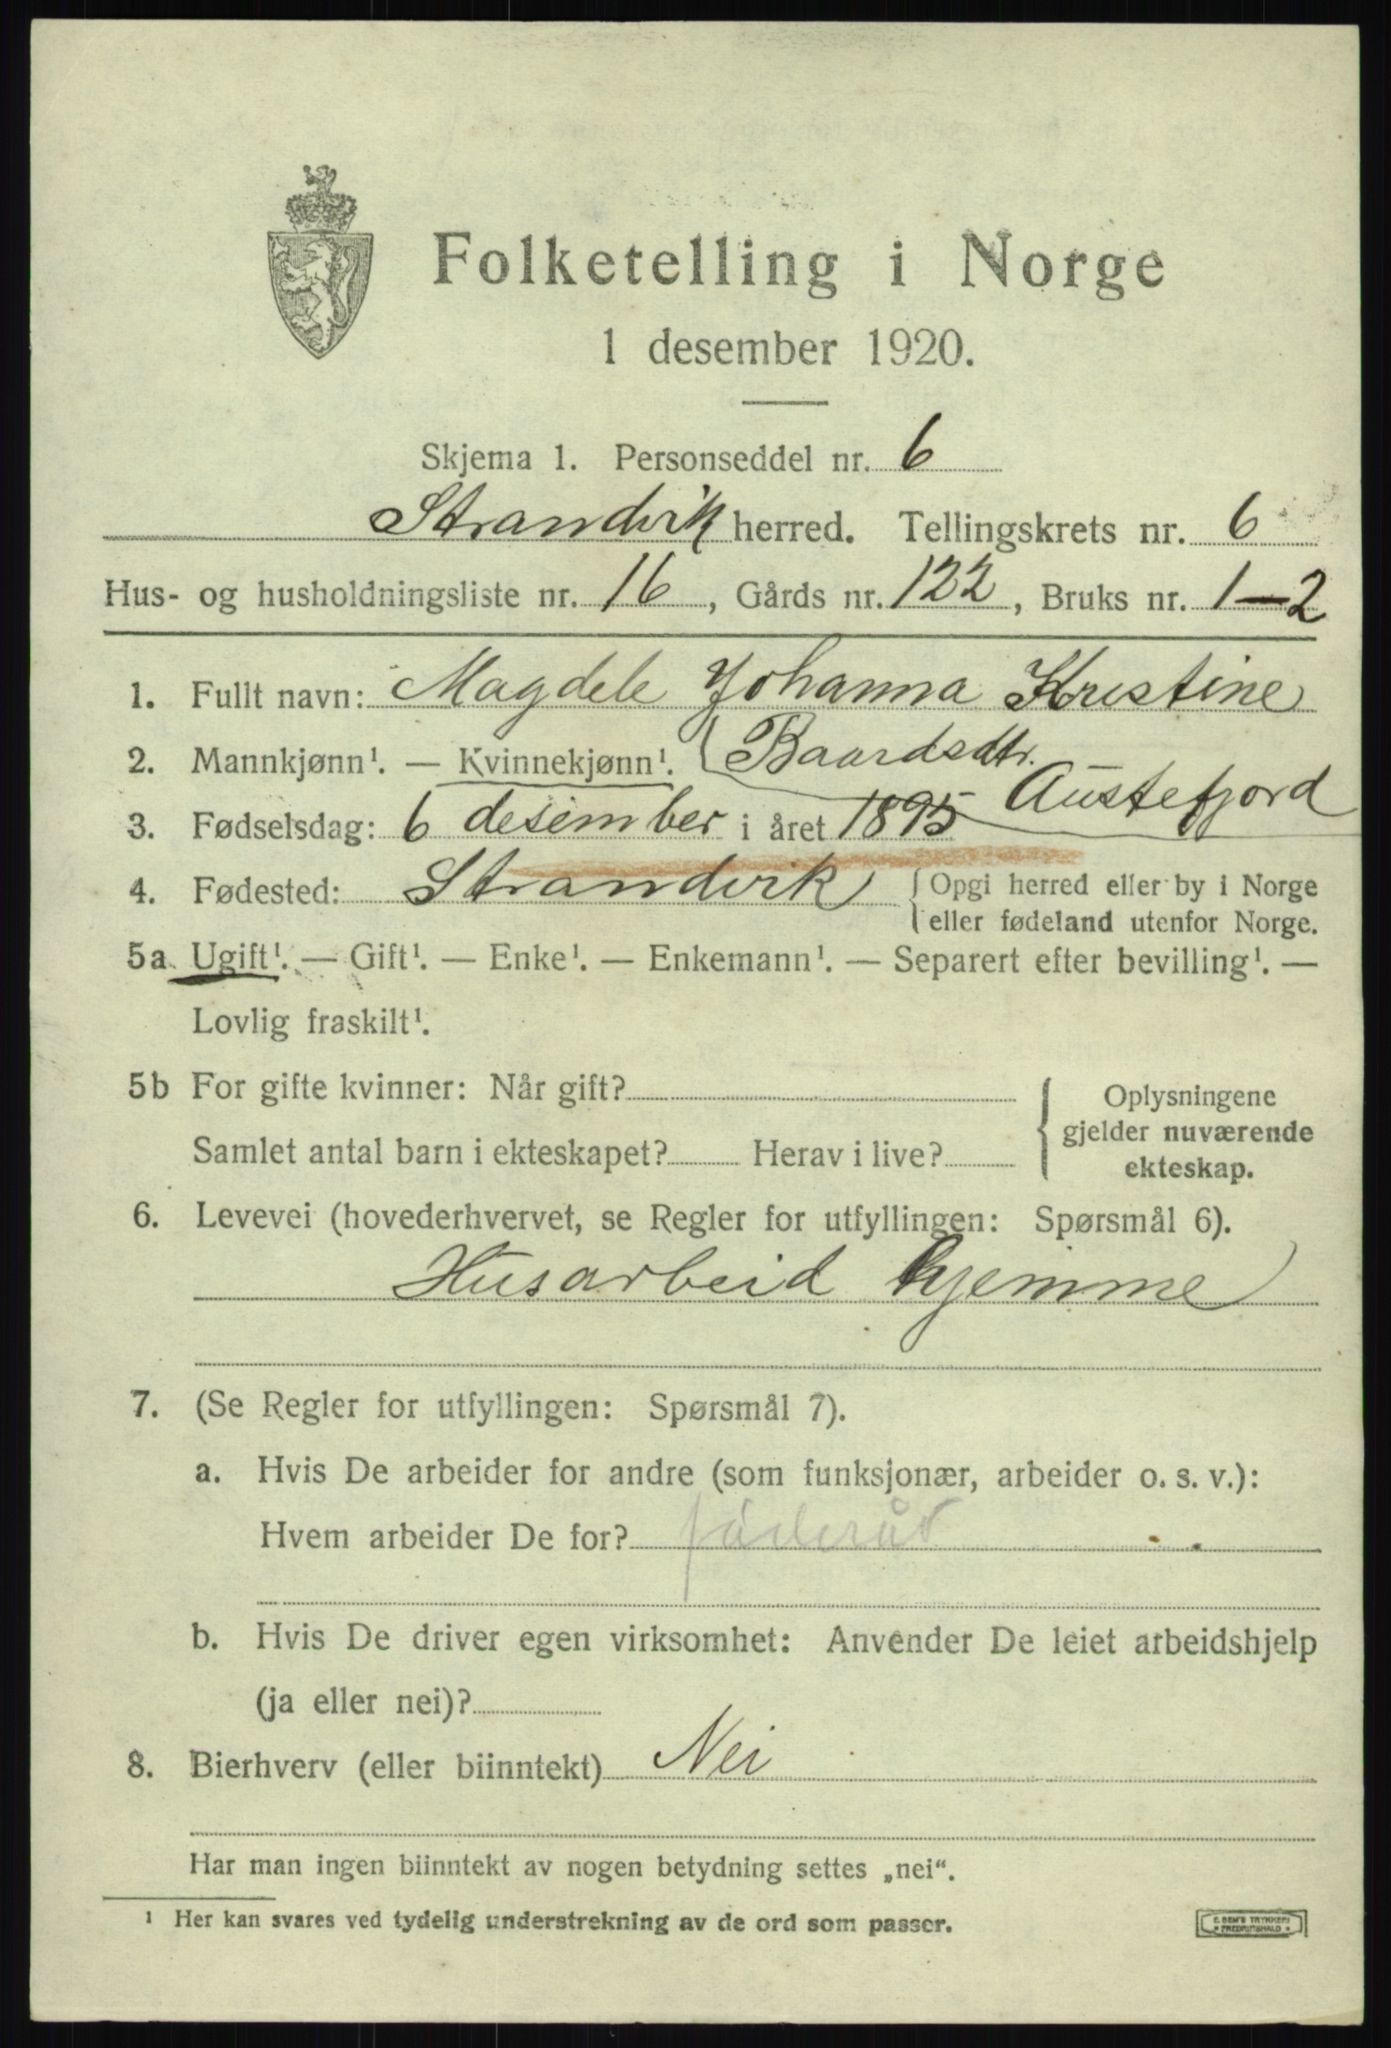 Folketelling i Norge
1 desember 1920.
Skjema 1. Personseddel nr. 6
Strandvik herred. Tellingskrets nr. 6
Hus- og husholdningsliste nr. 16, Gårds nr. 122, Bruks nr. 1-2
1. Fullt navn: Magdele Johanna Kristine
2. Mannkjønn¹. — Kvinnekjønn¹. Baardsdtr. Austefjord
3. Fødselsdag: 6 desember i året 1895
4. Fødested: Strandvik { Opgi herred eller by i Norge
eller fødeland utenfor Norge.
5a Ugift¹. — Gift¹. — Enke¹. — Enkemann¹. — Separert efter bevilling¹. —
Lovlig fraskilt¹.
5b For gifte kvinner: Når gift? { Oplysningene
gjelder nuværende
Samlet antal barn i ekteskapet? Herav i live? ekteskap.
6. Levevei (hovederhvervet, se Regler for utfyllingen: Spørsmål 6).
Husarbeid hjemme
7. (Se Regler for utfyllingen: Spørsmål 7).
a. Hvis De arbeider for andre (som funksjonær, arbeider o. s. v.):
Hvem arbeider De for?
b. Hvis De driver egen virksomhet: Anvender De leiet arbeidshjelp
(ja eller nei)?
8. Bierhverv (eller biinntekt) Nei
Har man ingen biinntekt av nogen betydning settes „nei“.
¹ Her kan svares ved tydelig understrekning av de ord som passer.
E. SEM'S TRYKKERI
FREDRIKSHALD